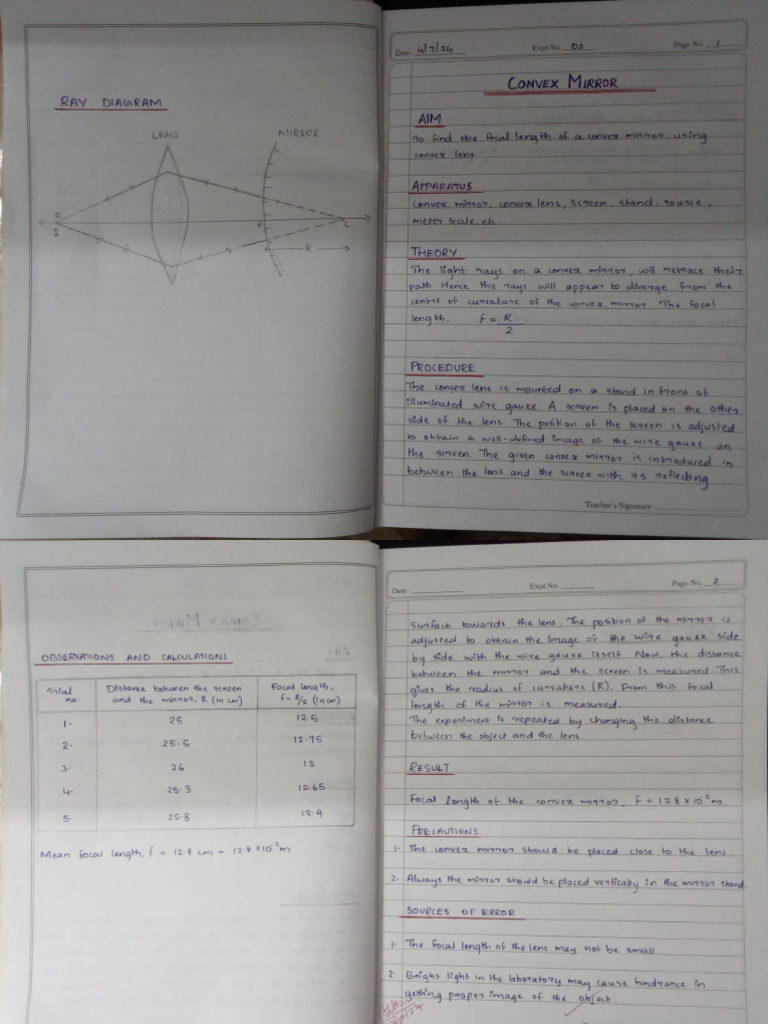 RAY DIAGRAM
LENS
MIRROR
O
I
P
C
R
Date 4/7/24
Expt No. 01
Page No. 1
CONVEX MIRROR
AIM
To find the focal length of a convex mirror, using
convex lens
APPARATUS
Convex mirror, convex lens, screen, stand, source,
meter scale, etc.
THEORY
The light rays on a convex mirror, will retrace their
path Hence the rays will appear to diverge from the
centre of curvature of the convex mirror. The focal
length, f = R/2
PROCEDURE
The convex lens is mounted on a stand in front of
illuminated wire gauze A screen is placed on the other
side of the lens. The position of the screen is adjusted
to obtain a well-defined image of the wire gauze on
the screen. The given convex mirror is introduced in
between the lens and the screen with its reflecting
Teacher's Signature
OBSERVATIONS AND CALCULATIONS
Serial no. Distance between the screen and the mirror, R (in cm) Focal length, f = R/2 (in cm)
1. 25 12.5
2. 25.5 12.75
3. 26 13
4. 25.3 12.65
5 25.8 12.9
Mean focal length, f = 12.8 cm = 12.8 × 10⁻²m
Date
Expt. No.
Page No. 2
surface towards the lens. The position of the mirror is
adjusted to obtain the image of the wire gauze side
by side with the wire gauze itself Now, the distance
between the mirror and the screen is measured. This
gives the radius of curvature (R). From this focal
length of the mirror is measured.
The experiment is repeated by changing the distance
between the object and the lens.
RESULT
Focal length of the convex mirror, f = 12.8 × 10⁻²m
PRECAUTIONS
1. The convex mirror should be placed close to the lens.
2. Always the mirror should be placed vertically in the mirror stand.
SOURCES OF ERROR
1. The focal length of the lens may not be small
2. Bright light in the laboratory may cause hindrance in
getting proper image of the object.